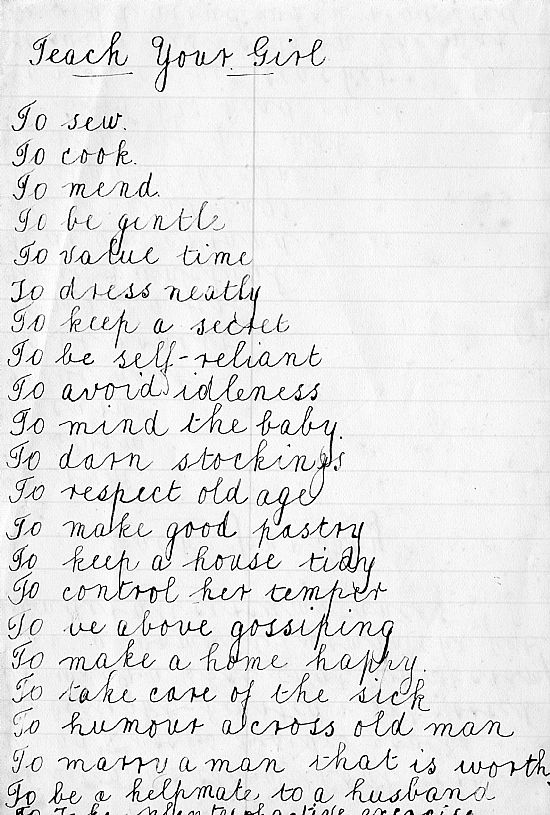 Teach Your Girl
To sew.
To cook.
To mend.
To be gentle
To value time
To dress neatly
To keep a secret
To be self-reliant
To avoid idleness
To mind the baby.
To darn stockings
To respect old age
To make good pastry
To keep a house tidy
To control her temper
To be above gossiping
To make a home happy.
To take care of the sick
To humour a cross old man
To marry a man that is worth
To be a helpmate to a husband
To take plenty of active exercise